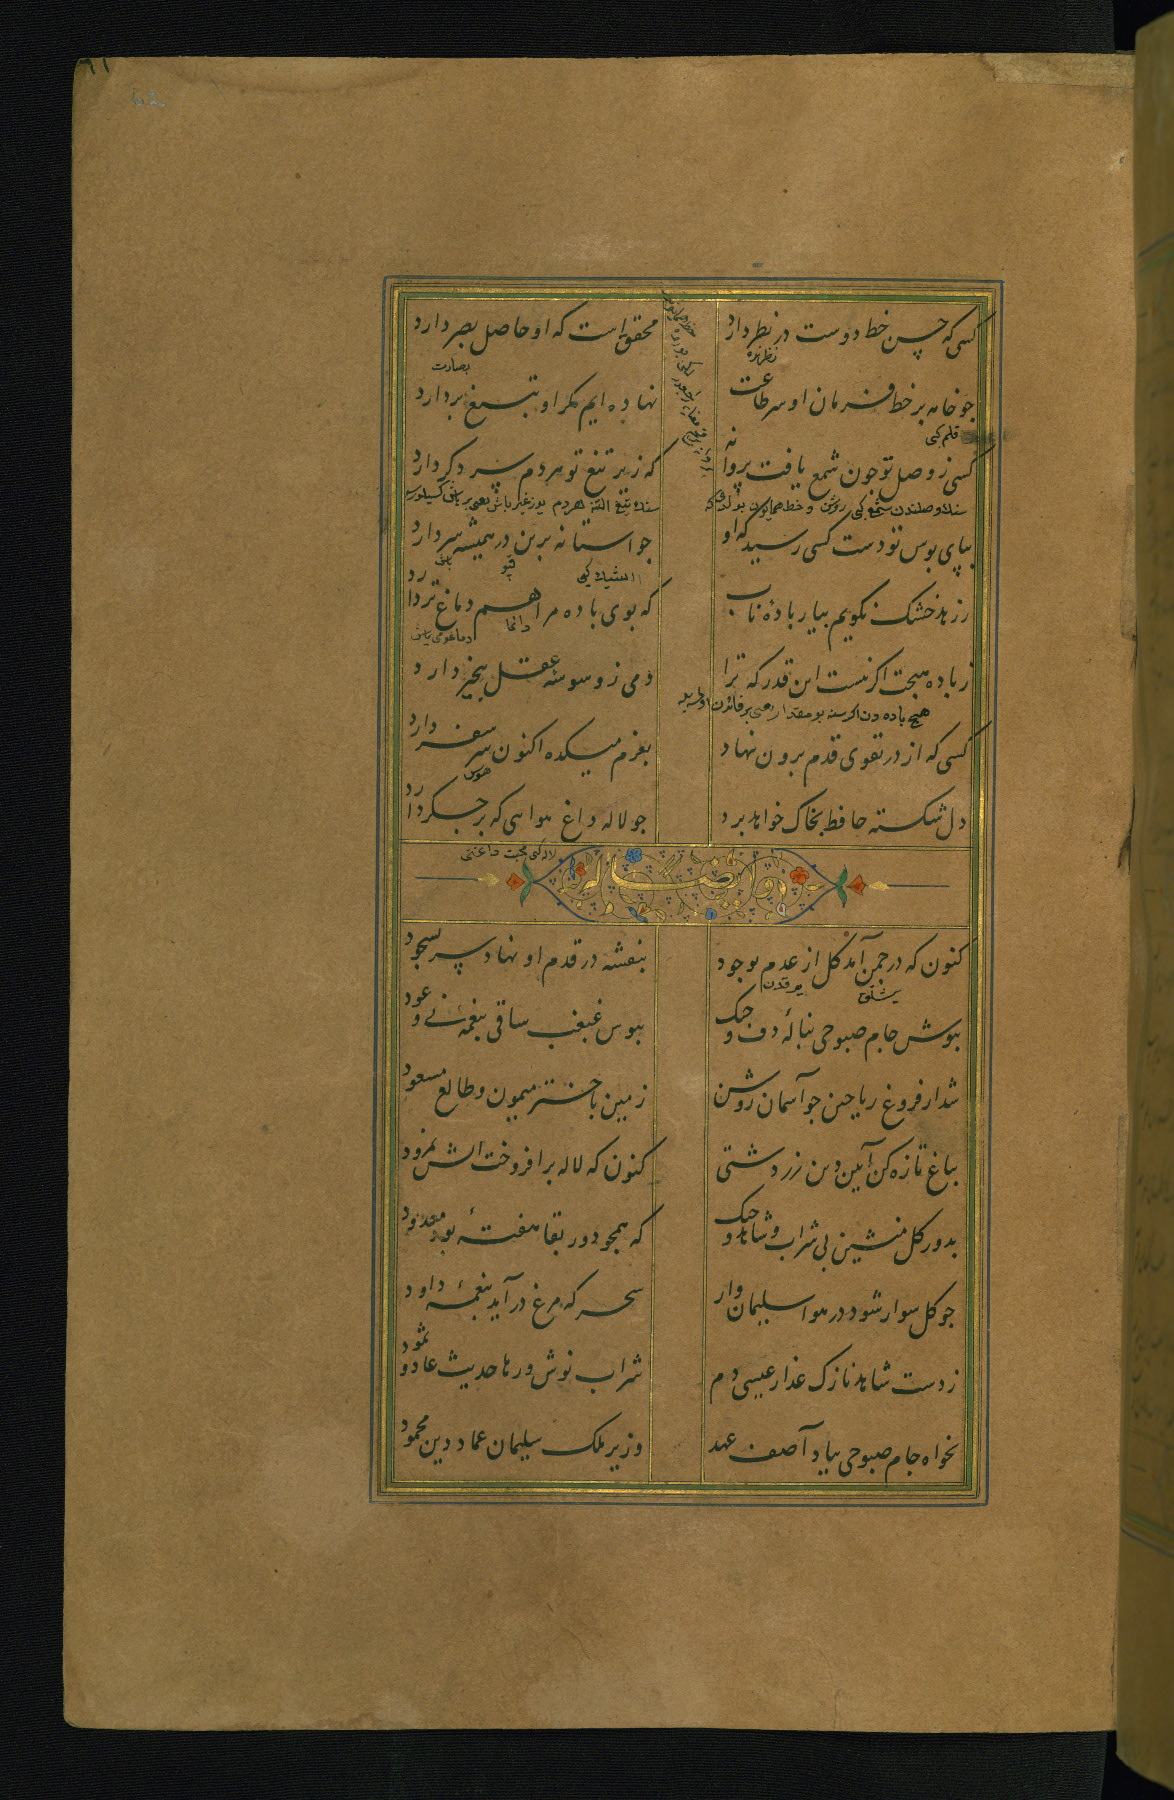 کسی که حسن خط دوست در نظر دارد
محقق است که او حاصل بصر دارد
نظرنده
بصارت
چو خامه بر خط فرمان او سر طاعت
نهاده ایم مکر او بتیغ بردارد
قلم کبی
کسی ز وصل تو چون شمع یافت پروانه
که زیر تیغ تو هر دم سر دکر دارد
بپای بوس تو دست کسی رسید که او
چو استانه برین در همیشه سر دارد
قپو
ز زهد خشک نکویم بیار باده ناب
که بوی باده مرا هم دماغ تر دارد
دائما
ز باده هیچت اکر نیست این قدر که ترا
دمی ز وسوسه عقل بیخبر دارد
هیچ باده دن اکر سنه بو مقدار
کسی که از در تقوی قدم برون نهاد
بعزم میکده اکنون سر سفر دارد
هوس
دل شکسته حافظ بخاک خواهد برد
چو لاله داغ هوایی که بر جکر دارد
لاله کبی محبت داغنی
و ایضا له
کنون که در چمن آمد کل از عدم بوجود
بنفشه در قدم او نهاد سر بسجود
بنوش جام صبوحی بناله دف و چنک
ببوس غبغب ساقی بنغمه نی و عود
شد از فروغ ریاحین چو آسمان روشن
زمین باختر میمون و طالع مسعود
بباغ تازه کن آیین دین زردشتی
کنون که لاله برافروخت اتش نمرود
بدور کل منشین بی شراب و شاهد و چنک
که همچو دور بقا هفته بود معدود
چو کل سوار شود در هوا سلیمان وار
سحر که مرغ در آید بنغمه داود
ز دست شاهد نازک عذار عیسی دم
شراب نوش و رها حدیث عاد و ثمود
بخواه جام صبوحی بیاد آصف عهد
وزیر ملک سلیمان عماد دین محمود